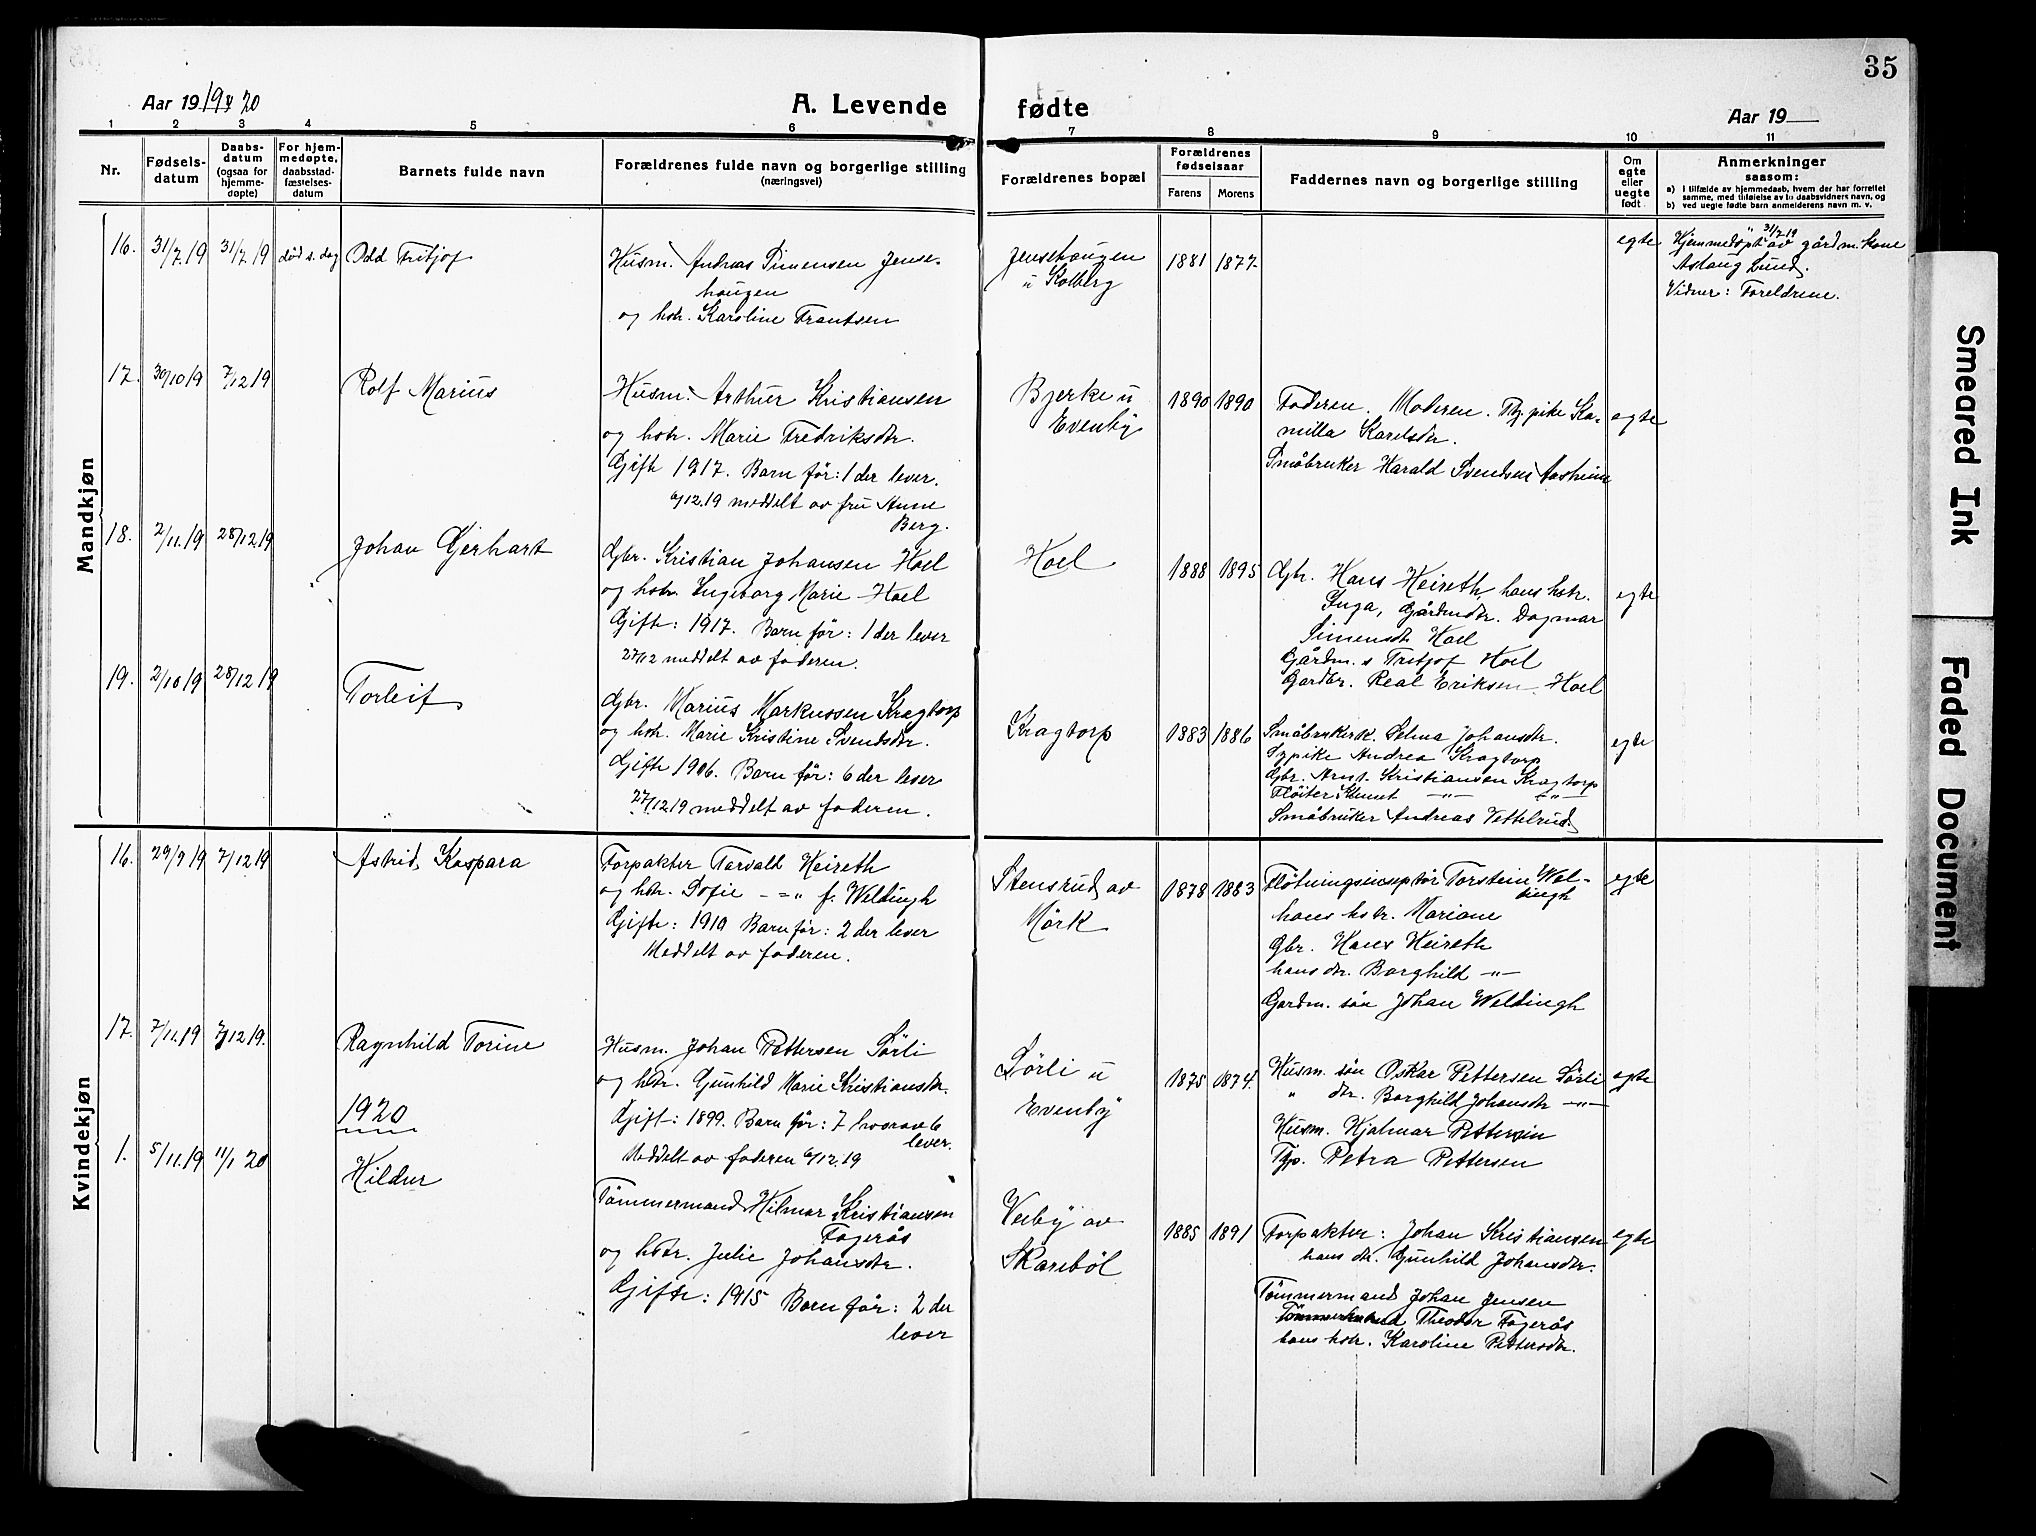 35
Aar 1919 & 20
A. Levende
fødte
Aar 19
1 2 3 4 5 6 7 8 9 10 11
Nr.
Fødsels-
datum
Daabs-
datum
(ogsaa for
hjemme-
døpte)
For hjem-
medøpte,
daabsstad-
fæstelses-
datum
Barnets fulde navn
Forældrenes fulde navn og borgerlige stilling
(næringsvei)
Forældrenes bopæl
Forældrenes
fødselsaar
Farens
Morens
Faddernes navn og borgerlige stilling
Om
egte
eller
uegte
født
Anmerkninger
saasom:
a) i tilfælde av hjemmedaab, hvem der har forrettet
samme, med tilføielse av to daabsvidners navn, og
b) ved uegte fødte barn anmelderens navn m. v.
Mandkjøn
16. 31/7.19 31/7.19 død s. dag Odd Fritjof
Husm. Andreas Simensen Jense-
haugen
og hstr. Karoline Frantsen
Jensehaugen
u Kolberg
1881 1877.
egte
Hjemmedøpt 31/7.19 av gårdm. kone
Aslaug Lund.
Vidner: Foreldrene.
17. 30/10 19 7/12 19 Rolf Marius
Husm. Arthur Kristiansen
og hstr. Marie Fredriksdtr.
Gift 1917. Barn før: 1 der lever.
6/12.19 meddelt av fru Anne
Berg.
Bjerke u
Evenby
1890 1890
Faderen. Moderen. Tj. pike Ka-
milla Karlsdtr.
Småbruker Harald Svendsen Aasheim
egte
18. 2/11.19 28/12 19 Johan Gerhart
Gbr. Kristian Johansen Hoel
og hstr. Ingeborg Marie Hoel
Gift: 1917. Barn før: 1 der lever
27/12 meddelt av faderen.
Hoel
1888 1895
Gbr. Hans Heireth, hans hstr.
Inga, Gårdmdtr. Dagmar
Simensdtr Hoel
Gårdm. s Fritjof Hoel
Gardbr. Real Eriksen Hoel
egte
19. 2/10 19 28/12 19 Torleif
Gbr. Marius Markussen Kragtorp
og hstr. Marie Kristine Svendsdtr.
Gift 1906. Barn før: 6 der lever
27/12 19 meddelt av faderen.
Kragtorp
1883 1886
Småbrukerk. Selma Johansdtr.
Sypike Andrea Kragtorp
Gbr. Arnt. Kristiansen Kragtorp
Fløiter Klemet —"— —"—
Småbruker Andreas Vettelrud
egte
Kvindekjøn
16. 29/9 19 7/12 19 Astrid Kaspara
Forpakter Torvald Heireth
og hstr. Sofie —"— f. Weldingh
Gift: 1910 Barn før: 2 der lever
Meddelt av faderen.
Stensrud av
Mörk
1878 1883
Fløtningsinspektør Torstein Wel-
dingh
hans hstr. Mariane
Gbr. Hans Heireth
hans dtr. Borghild —"—
Gardm. søn Johan Weldingh
egte
17. 7/11.19 7/12 19. Ragnhild Torine
Husm. Johan Pettersen Sørli
og hstr. Gunhild Marie Kristiansdtr.
Gift: 1899. Barn før: 7 hvorav 6
lever.
Meddelt av faderen 6/12.19
Sørli u
Evenby
1875 1874.
Husm. søn Oskar Pettersen Sørli
" dtr. Borghild Johansdtr —"—
Husm. Hjalmar Pettersen
Tjp. Petra Pettersen
egte
1920
1. 5/11.19 11/1 20 Hildur
Tömmermand Hilmar Kristiansen
Fagerås
og hstr. Julie Johansdtr.
Gift: 1915 Barn før: 2 der
lever
Veeby av
Skaribøl
1885 1891
Forpakter: Johan Kristiansen
hans dtr. Gunhild Johansdtr.
Tömmermand Johan Jensen
Tömmermand Theodor Fagerås
hans hstr. Karoline Pettersdtr.
egte
Smeared Ink
Faded Document